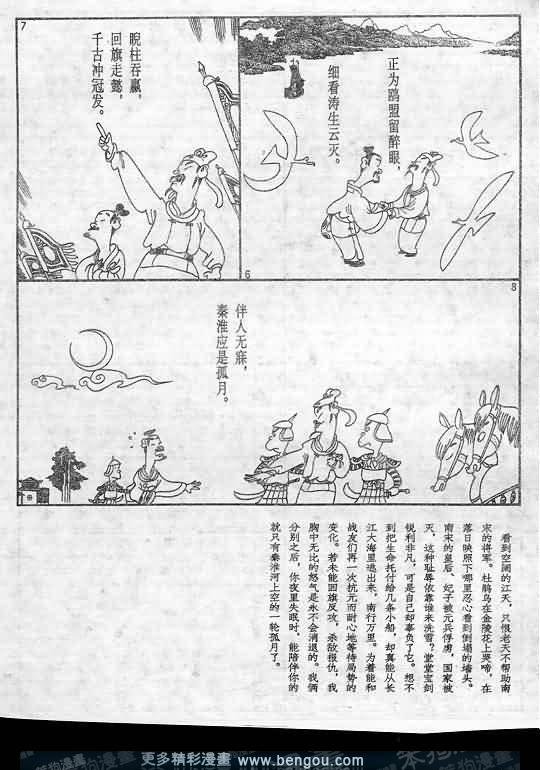 6
正为鸥盟留醉眼，
细看涛生云灭。
7
睨柱吞嬴，
回旗走懿，
千古冲冠发。
8
伴人无寐，
秦淮应是孤月。
看到空阔的江天，只恨老天不帮助南
宋的将军。杜鹃鸟在金陵花上哭啼，在
落日映照下哪里忍心看到倒塌的墙头。
南宋的皇后、妃子被元兵俘虏，国家被
灭，这种耻辱依靠谁来洗雪？堂堂宝剑
锐利非凡，可是自己却辜负了它。想不
到把生命托付给几条小船，却真能从长
江大海里逃出来，南行万里。为着能和
战友们再一次抗元而耐心地等待局势的
变化。若未能回旗反攻，杀敌报仇，我
胸中无比的怒气是永不会消退的。我俩
分别之后，你夜里失眠时，能陪伴你的
就只有秦淮河上空的一轮孤月了。
更多精彩漫畫 www.bengou.com